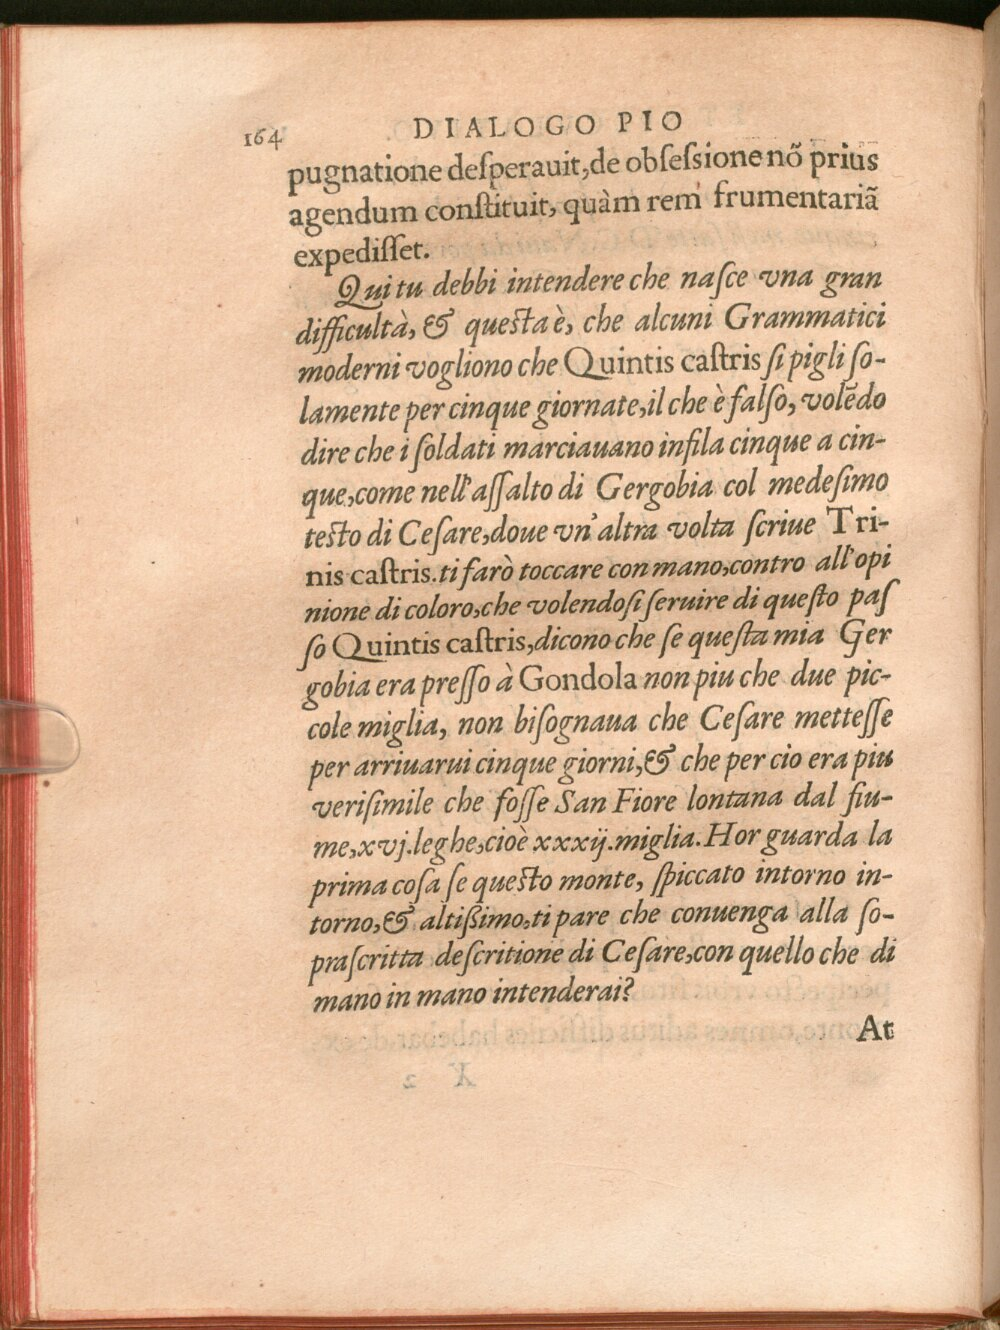 164 DIALOGO PIO
pugnatione deſperauit, de obſeſsione nõ prius
agendum conſtituit, quàm rem frumentariã
expediſſet.
Qui tu debbi intendere che naſce vna gran
difficultà, & queſta è, che alcuni Grammatici
moderni vogliono che Quintis caſtris ſi pigli ſo-
lamente per cinque giornate, il che è falſo, volẽdo
dire che i ſoldati marciauano infila cinque a cin-
que, come nell'aſſalto di Gergobia col medeſimo
teſto di Ceſare, doue vn'altra volta ſcriue Tri-
nis caſtris. ti farò toccare con mano, contro all'opi
nione di coloro, che volendoſi ſeruire di queſto paſ
ſo Quintis caſtris, dicono che ſe queſta mia Ger
gobia era preſſo à Gondola non piu che due pic-
cole miglia, non biſognaua che Ceſare metteſſe
per arriuarui cinque giorni, & che per cio era piu
veriſimile che foſſe San Fiore lontana dal fiu-
me, xvj. leghe, cioè xxxij. miglia. Hor guarda la
prima coſa ſe queſto monte, ſpiccato intorno in-
torno, & altißimo, ti pare che conuenga alla ſo-
praſcritta deſcritione di Ceſare, con quello che di
mano in mano intenderai?
At